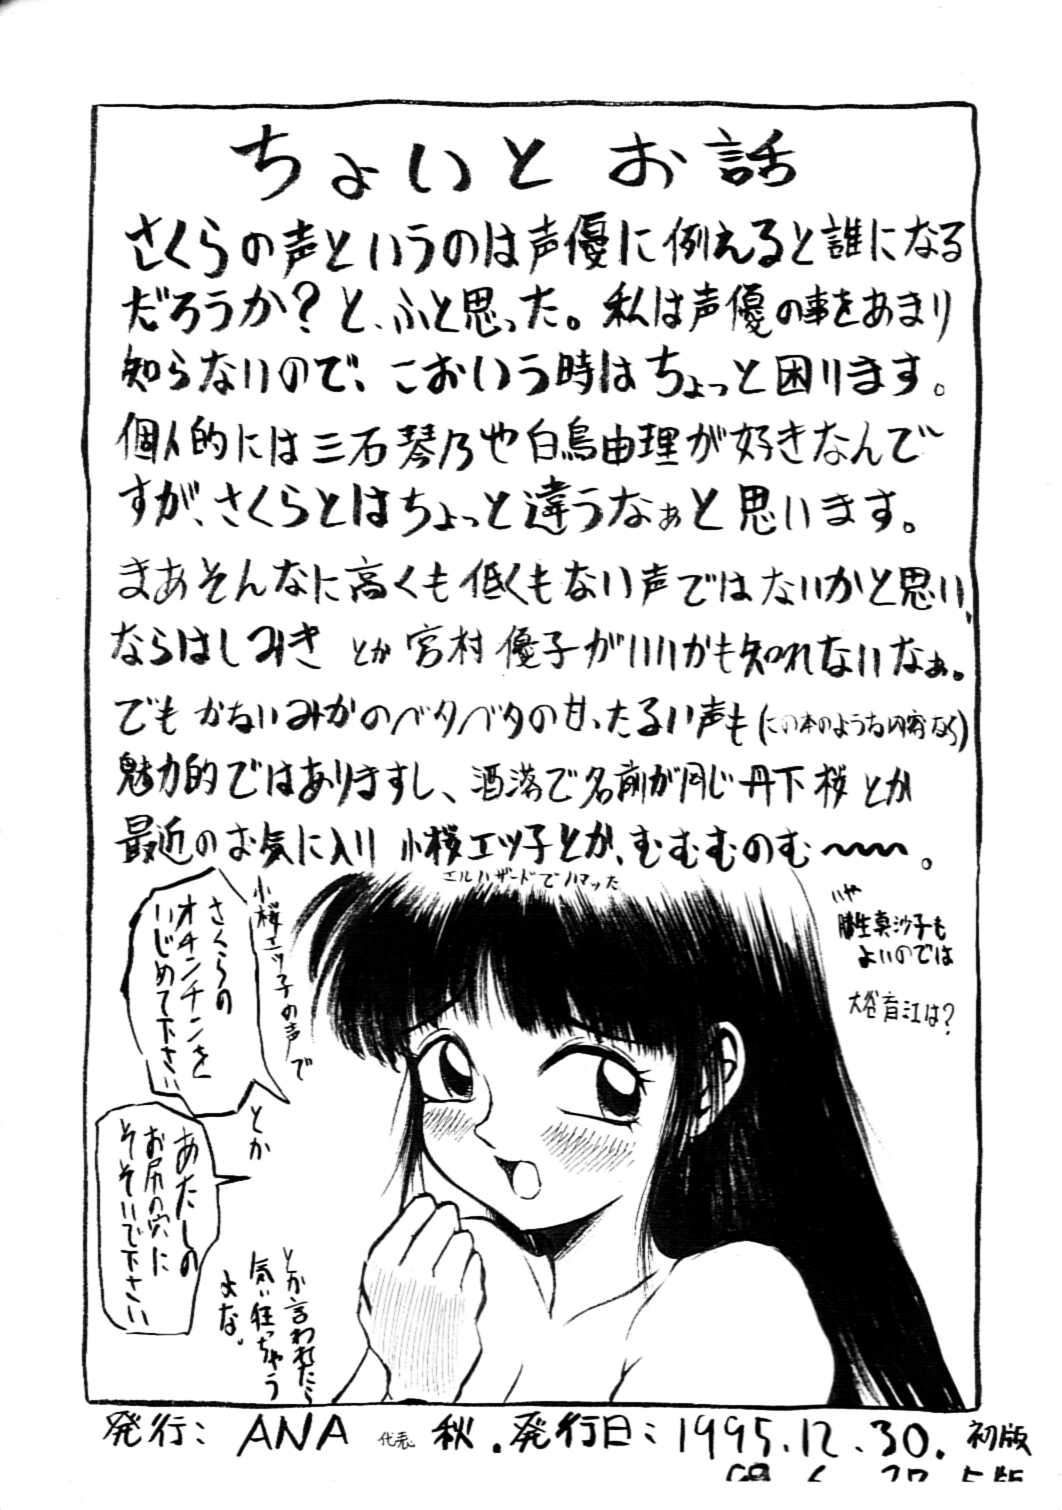 ちょいとお話
さくらの声というのは声優に例えると誰になる
だろうか？と、ふと思った。私は声優の事をあまり
知らないので、こおいう時はちょっと困ります。
個人的には三石琴乃や白鳥由理が好きなんで
すが、さくらとはちょっと違うなぁと思います。
まあそんなに高くも低くもない声ではないかと思い、
ならはしみき とか宮村優子がいいかも知れないなぁ。
でもかないみかのベタベタの甘ったるい声も(この本のような内容なら)
魅力的ではありますし、洒落で名前が同じ丹下桜とか
最近のお気に入り 小桜エツ子とか、むむむのむ〜〜〜。
エルハザードでハマった
いや
勝生真沙子も
よいのでは
大谷育江は？
小桜エツ子の声で
さくらの
オチンチンを
いじめて下さい
とか
あたしの
お尻の穴に
そそいで下さい
とか言われたら
気い狂っちゃう
よな。
発行：ANA 代表 秋．発行日：1995.12.30.初版